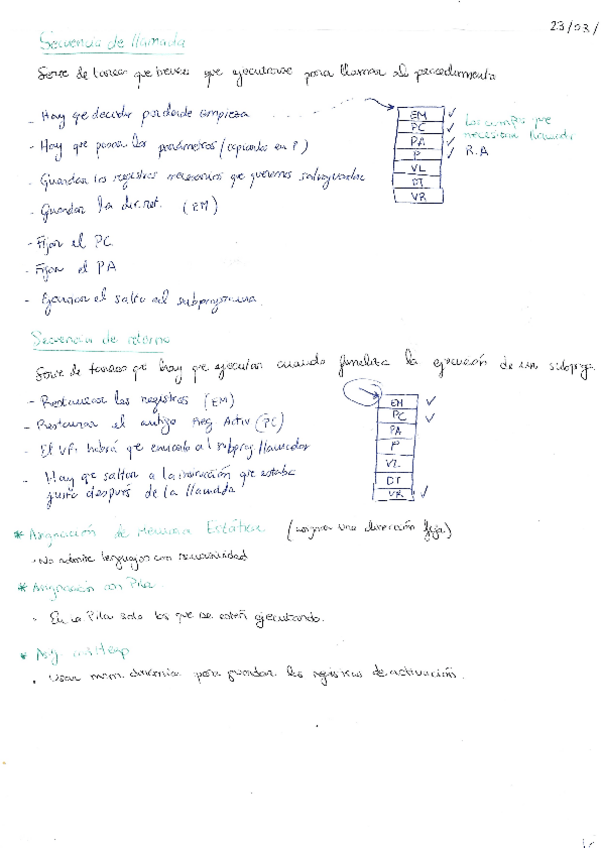 23/03/
Secuencia de llamada
Serie de tareas que hay que ejecutarse para llamar al procedimiento
- Hay que decidir por donde empieza
- Hay que pasar los parámetros (copiarlos en P)
- Guardar los registros necesarios que queremos salvaguardar
- Guardar la dir. ret. (EM)
- Fijar el PC
- Fijar el PA
- Ejecutar el salto al subprograma.
EM ✓
PC ✓
PA ✓
P ✓
VL
DT
VR
Los campos que
necesitan
R.A
Secuencia de retorno
Serie de tareas que hay que ejecutar cuando finaliza la ejecución de un subprog.
- Restaurar los registros (EM)
- Restaurar el antiguo Reg Activ (PC)
- El VR habrá que enviarlo al subprog llamador
- Hay que saltar a la instrucción que estaba
justo después de la llamada
EM ✓
PC ✓
PA
P
VL
DT
VR ✓
* Asignación de Memoria Estática (asignar una dirección fija)
· No admite lenguajes con recursividad
* Asignación con Pila
- En la Pila solo los que se estén ejecutando.
* Asig con Heap
· Usar mem. dinámica para guardar los registros de activación.